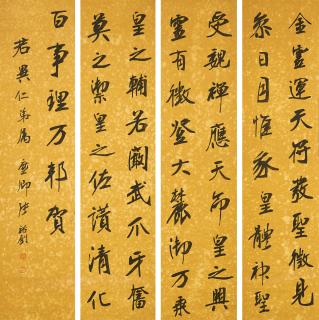 金靈運天符發聖徵見
參日月惟我皇體神聖
受魏禪應天命皇之興
靈有徵登大麓御万乘
皇之輔若闞武爪牙奮
莫之禦皇之佐讃清化
百事理万邦賀
仁弟属